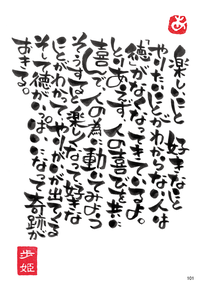 あ
楽しいこと 好きなこと
やりたいことがわからない人は
「徳」がなくなってきているよ。
とりあえず、人の喜びを共に
喜んで、人の為に動いてみよう
そうすると楽しくなって好きな
ことがわかってやりがいが出てくる
そして徳がいっぱいになって奇跡が
おきる。
歩姫
101